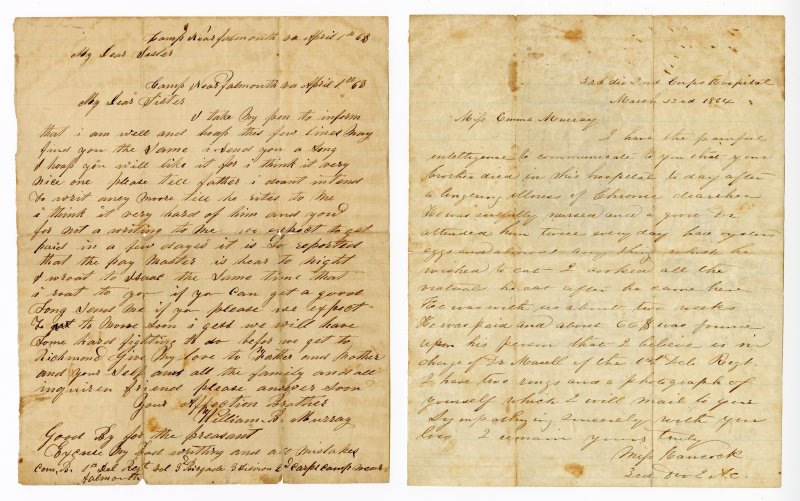 Camp Near falmouth va April 1st 63
My Dear Sister
Camp Near falmouth va April 1st 63
My Dear Sister
I take My pen to inform
that i am well and hoap this few lines May
find you the Same i Send you a Song
I hoap you will like it for i think it very
nice one please tell father i dount intend
to writ aney more till he rites to Me
i think it very hard of him and you
for not a writing to me we expect to get
paid in a few dayes it is So reported
that the pay Master is hear to night
I wroat to the Same time that
i roat to you if you can get a good
Song Send me if you please we expect
to to Move Soon i gess we will have
Some hard fighting to do before we get to
Richmond Give My love to Father and Mother
and your Self and all the family and all
inquiren friend please answer Soon
Your Affection Brother
William B. Murray
Good By for the preasant
Excuse My bad writing and all mistakes
Com. B. 1st Del Regt Vol 3d Brigade 3 divison 2d Carps Camp near
falmouth
3rd div 2nd Corps Hospital
March 22nd 1864
Miss Emma Murray
I have the painful
intelligence to communicate to you that your
brother died in this hospital to day after
a lingering illness of Chronic diarrhea
He was carefully nursed and a good Dr
attended him twice every day had oysters
eggs and almost any thing which he
wished to eat I cooked all the
he eat after he came here
He was with us about two weeks
He was paid and about 66$ was found
upon his person that I believe is in
charge of Dr of the 1st Dela Regt.
I have two rings and a photograph of
yourself which I will mail to you
Sympathizing Sincerely with your
loss I remain yours truly
Miss Hancock
3rd Div 2 A.C.